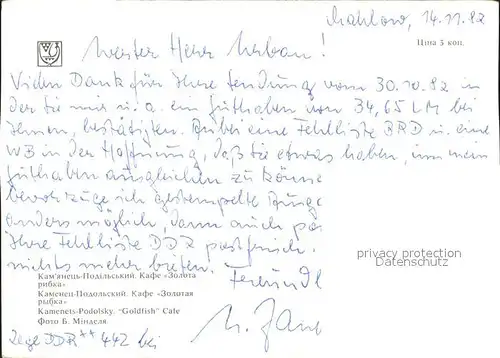 Mahlow, 14.11.82
Ціна 3 коп.
Werter Herr Urban!
Vielen Dank für Ihre Sendung vom 30.10.82 in
der Sie mir u. a. ein Guthaben von 34,65 LM bei
Ihnen, bestätigten. Anbei eine Fehlliste BRD u. eine
WB in der Hoffnung, daß Sie etwas haben, um mein
Guthaben ausgleichen zu könne
bevorzuge ich gestempelte
anders möglich, dann auch pos
Ihre Fehlliste DDR postfrisch.
nichts mehr bieten.
privacy protection
Datenschutz
Freundl
Кам'янець-Подільський. Кафе «Золота
рибка»
Каменец-Подольский. Кафе «Золотая
рыбка»
Kamenets-Podolsky. "Goldfish" Cafe
Фото Б. Мінделя
Lege DDR** 442 bei